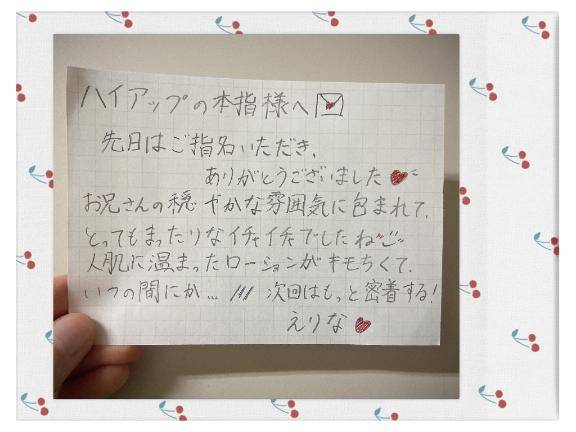 ハイアップの本指様へ
先日はご指名いただき、
ありがとうございました
お兄さんの穏やかな雰囲気に包まれて、
とってもまったりなイチャイチャでしたね
人肌に温まったローションがキモちくて、
いつの間にか... /// 次回はもっと密着する!
えりな